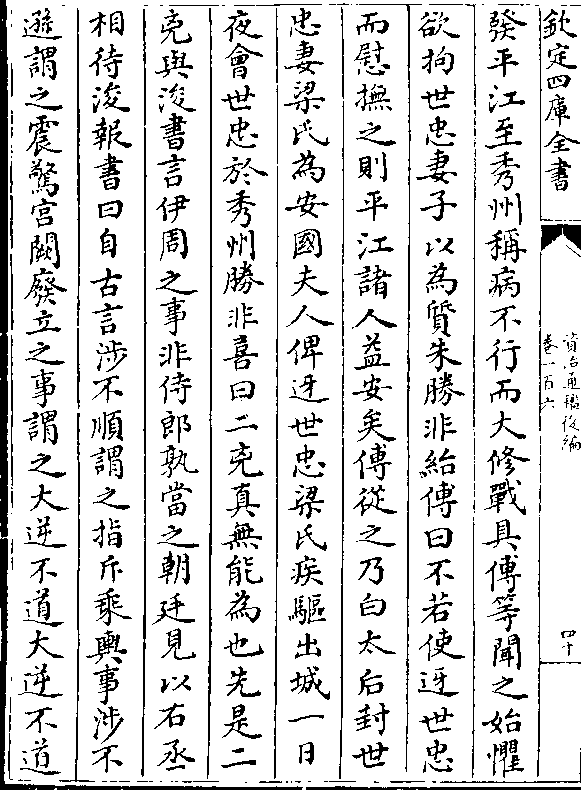 欽定四庫全書
資治通鑑後編
卷一百六
四十
發平江至秀州稱病不行而大修戰具傅等聞之始懼
欲拘世忠妻子以為質朱勝非紿傅曰不若使迓世忠
而慰撫之則平江諸人益安矣傅從之乃白太后封世
忠妻梁氏為安國夫人俾迓世忠梁氏疾驅出城一日
夜會世忠於秀州勝非喜曰二兇真無能為也先是二
兇與浚書言伊周之事非侍郎孰當之朝廷見以右丞
相待浚報書曰自古言涉不順謂之指斥乘輿事涉不
遜謂之震驚宮闕廢立之事謂之大逆不道大逆不道